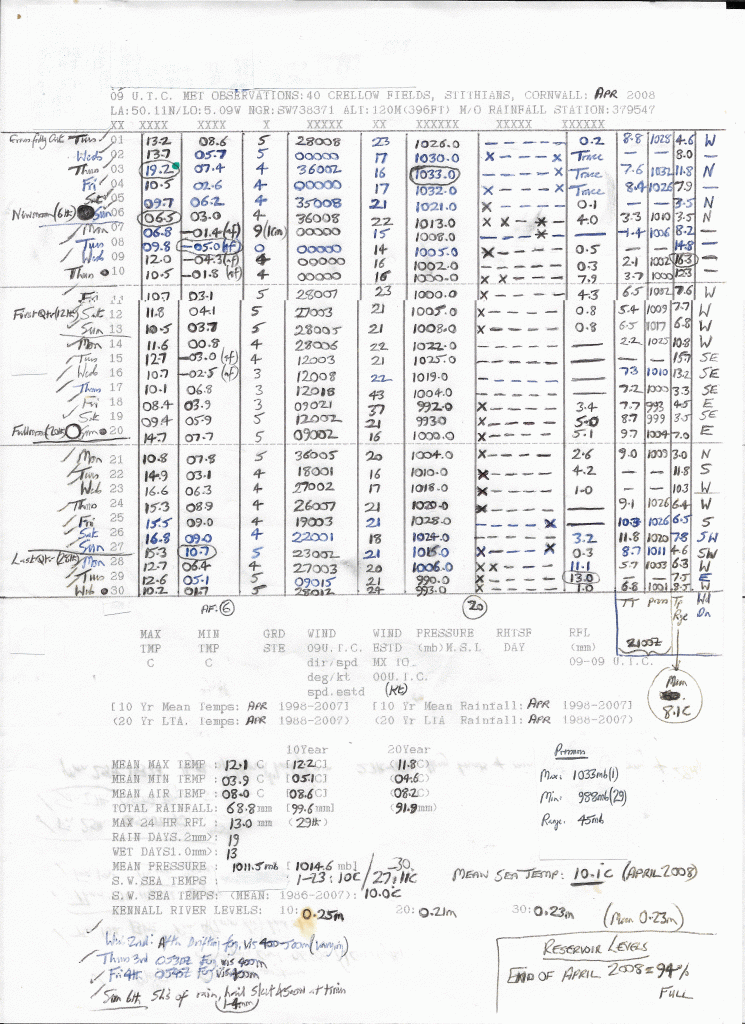 09 U.T.C. MET OBSERVATIONS:40 CRELLOW FIELDS, STITHIANS, CORNWALL: APR 2008
LA:50.11N/LO:5.09W NGR:SW738371 ALT:120M(396FT) M/O RAINFALL STATION:379547
XX XXXX XXXX X XXXXX XX XXXXXX XXXXX XXXXXX
Tues 01 13.2 08.6 5 28008 23 1026.0 ----- 0.2 8.8 1028 4.6 W
Wed 02 13.7 05.7 5 00000 17 1030.0 X--X- Trace — 8.0 —
Thu 03 19.2 07.4 4 36002 16 1033.0 ---X- Trace 7.6 1032 11.8 N
Fri 04 10.5 02.6 4 00000 17 1032.0 ---X- Trace 8.4 1026 7.9 —
Sat 05 09.7 06.2 4 35008 21 1021.0 X---- 0.1 — 3.5 N
New moon (6th) Sun 06 06.5 03.0 4 36008 22 1013.0 XX-X- 4.0 3.3 1010 3.5 N
Mon 07 06.8 -01.4 (af) 9 (1cm) 15 1008.0 ----- -1.4 1006 8.2 —
Tues 08 09.8 -05.0 (af) 0 00000 14 1005.0 X---- 0.5 — 14.8 —
Wed 09 12.0 -04.3 (af) 4 00000 16 1002.0 ----- 0.3 2.1 1000 16.3 —
Thu 10 10.5 -01.8 (af) 4 00000 16 1000.0 X--X- 7.9 3.7 1000 12.3 —
Fri 11 10.7 03.1 5 28007 23 1000.0 X---- 4.3 6.5 1002 7.6 W
First Qtr (12th) Sat 12 11.8 04.1 5 27003 21 1005.0 X---- 0.8 5.4 1009 7.7 W
Sun 13 10.5 03.7 5 28005 21 1008.0 X---- 0.8 6.5 1017 6.8 W
Mon 14 11.6 00.8 4 28006 22 1022.0 ----- — 2.2 1025 10.8 W
Tues 15 12.7 -03.0 (af) 4 12003 21 1025.0 ----- — — 15.7 SE
Wed 16 10.7 -02.5 (af) 3 12008 22 1019.0 ----- — 7.3 1010 13.2 SE
Thu 17 10.1 06.8 3 12018 43 1004.0 ----- — 7.2 1000 3.3 SE
Fri 18 08.4 03.9 3 09021 37 992.0 X---- 3.4 7.7 993 4.5 E
Sat 19 09.4 05.9 5 12002 21 993.0 X---- 5.0 8.7 999 3.5 SE
Full moon (20th) Sun 20 14.7 07.7 5 09002 16 1000.0 X---- 5.1 9.7 1004 7.0 E
Mon 21 10.8 07.8 5 36005 20 1004.0 X---- 2.6 9.0 1009 3.0 N
Tues 22 14.9 03.1 4 18001 16 1010.0 X---- 4.2 — 11.8 S
Wed 23 16.6 06.3 4 27002 17 1018.0 X---- 1.0 — 10.3 W
Thu 24 15.3 08.9 4 26007 21 1020.0 X---- — 9.1 1026 6.4 W
Fri 25 15.5 09.0 4 19003 21 1028.0 ----X — 10.3 1026 6.5 S
Sat 26 16.8 09.0 4 22001 18 1024.0 ----- 3.2 11.8 1020 7.8 SW
Sun 27 15.3 10.7 5 23002 21 1015.0 X---X 0.3 8.7 1011 4.6 SW
Last Qtr (28th) Mon 28 12.7 06.4 4 27003 20 1006.0 XX--- 11.1 5.7 1003 6.3 W
Tues 29 12.6 05.1 5 09015 21 990.0 X---- 13.0 — 7.5 E
Wed 30 10.2 01.7 5 28012 24 993.0 X---- 1.0 6.8 1001 8.5 W
AF. 6 20 TT Pmm Tp Rge Wd Dn
2100Z
MAX MIN GRD WIND WIND PRESSURE RHTSF RFL
TMP TMP STE 09U.T.C. ESTD (mb)M.S.L DAY (mm)
C C dir/spd MX TO. 09-09 U.T.C.
deg/kt 00U.T.C.
spd.estd (kt)
Mean 8.1C
[10 Yr Mean Temps: APR 1998-2007] [10 Yr Mean Rainfall: APR 1998-2007]
(20 Yr LTA. Temps: APR 1988-2007) (20 Yr LTA Rainfall: APR 1988-2007)
10Year 20Year
MEAN MAX TEMP : 12.1 C [12.2C] 11.8C)
MEAN MIN TEMP : 03.9 C [05.1C] 04.6C)
MEAN AIR TEMP : 08.0 C [08.6C] 08.2C)
TOTAL RAINFALL: 68.8mm [99.6mm] (91.9mm)
MAX 24 HR RFL : 13.0 mm (29th)
RAIN DAYS.2mm>: 19
WET DAYS1.0mm>: 13
MEAN PRESSURE : 1011.5mb [1014.6 mb]
Pressure
Max: 1033mb(1)
Min: 988mb(29)
Range: 45mb
S.W.SEA TEMPS : 1-23: 10C / 27-30. 11C
MEAN SEA TEMP: 10.1C (APRIL 2008)
S.W. SEA TEMPS: (MEAN: 1986-2007): 10.0C
KENNALL RIVER LEVELS: 10: 0.25m 20: 0.21m 30: 0.23m (Mean 0.23m)
Wed 2nd: Aftn Drifting fog, vis 400-700m (varying)
Thu 3rd 0530Z Fog vis 400m
Fri 4th 0545Z Fog vis 400m
Sun 6th Sh's of rain, hail
1-4mm
RESERVOIR LEVELS
END OF APRIL 2008 = 94%
FULL